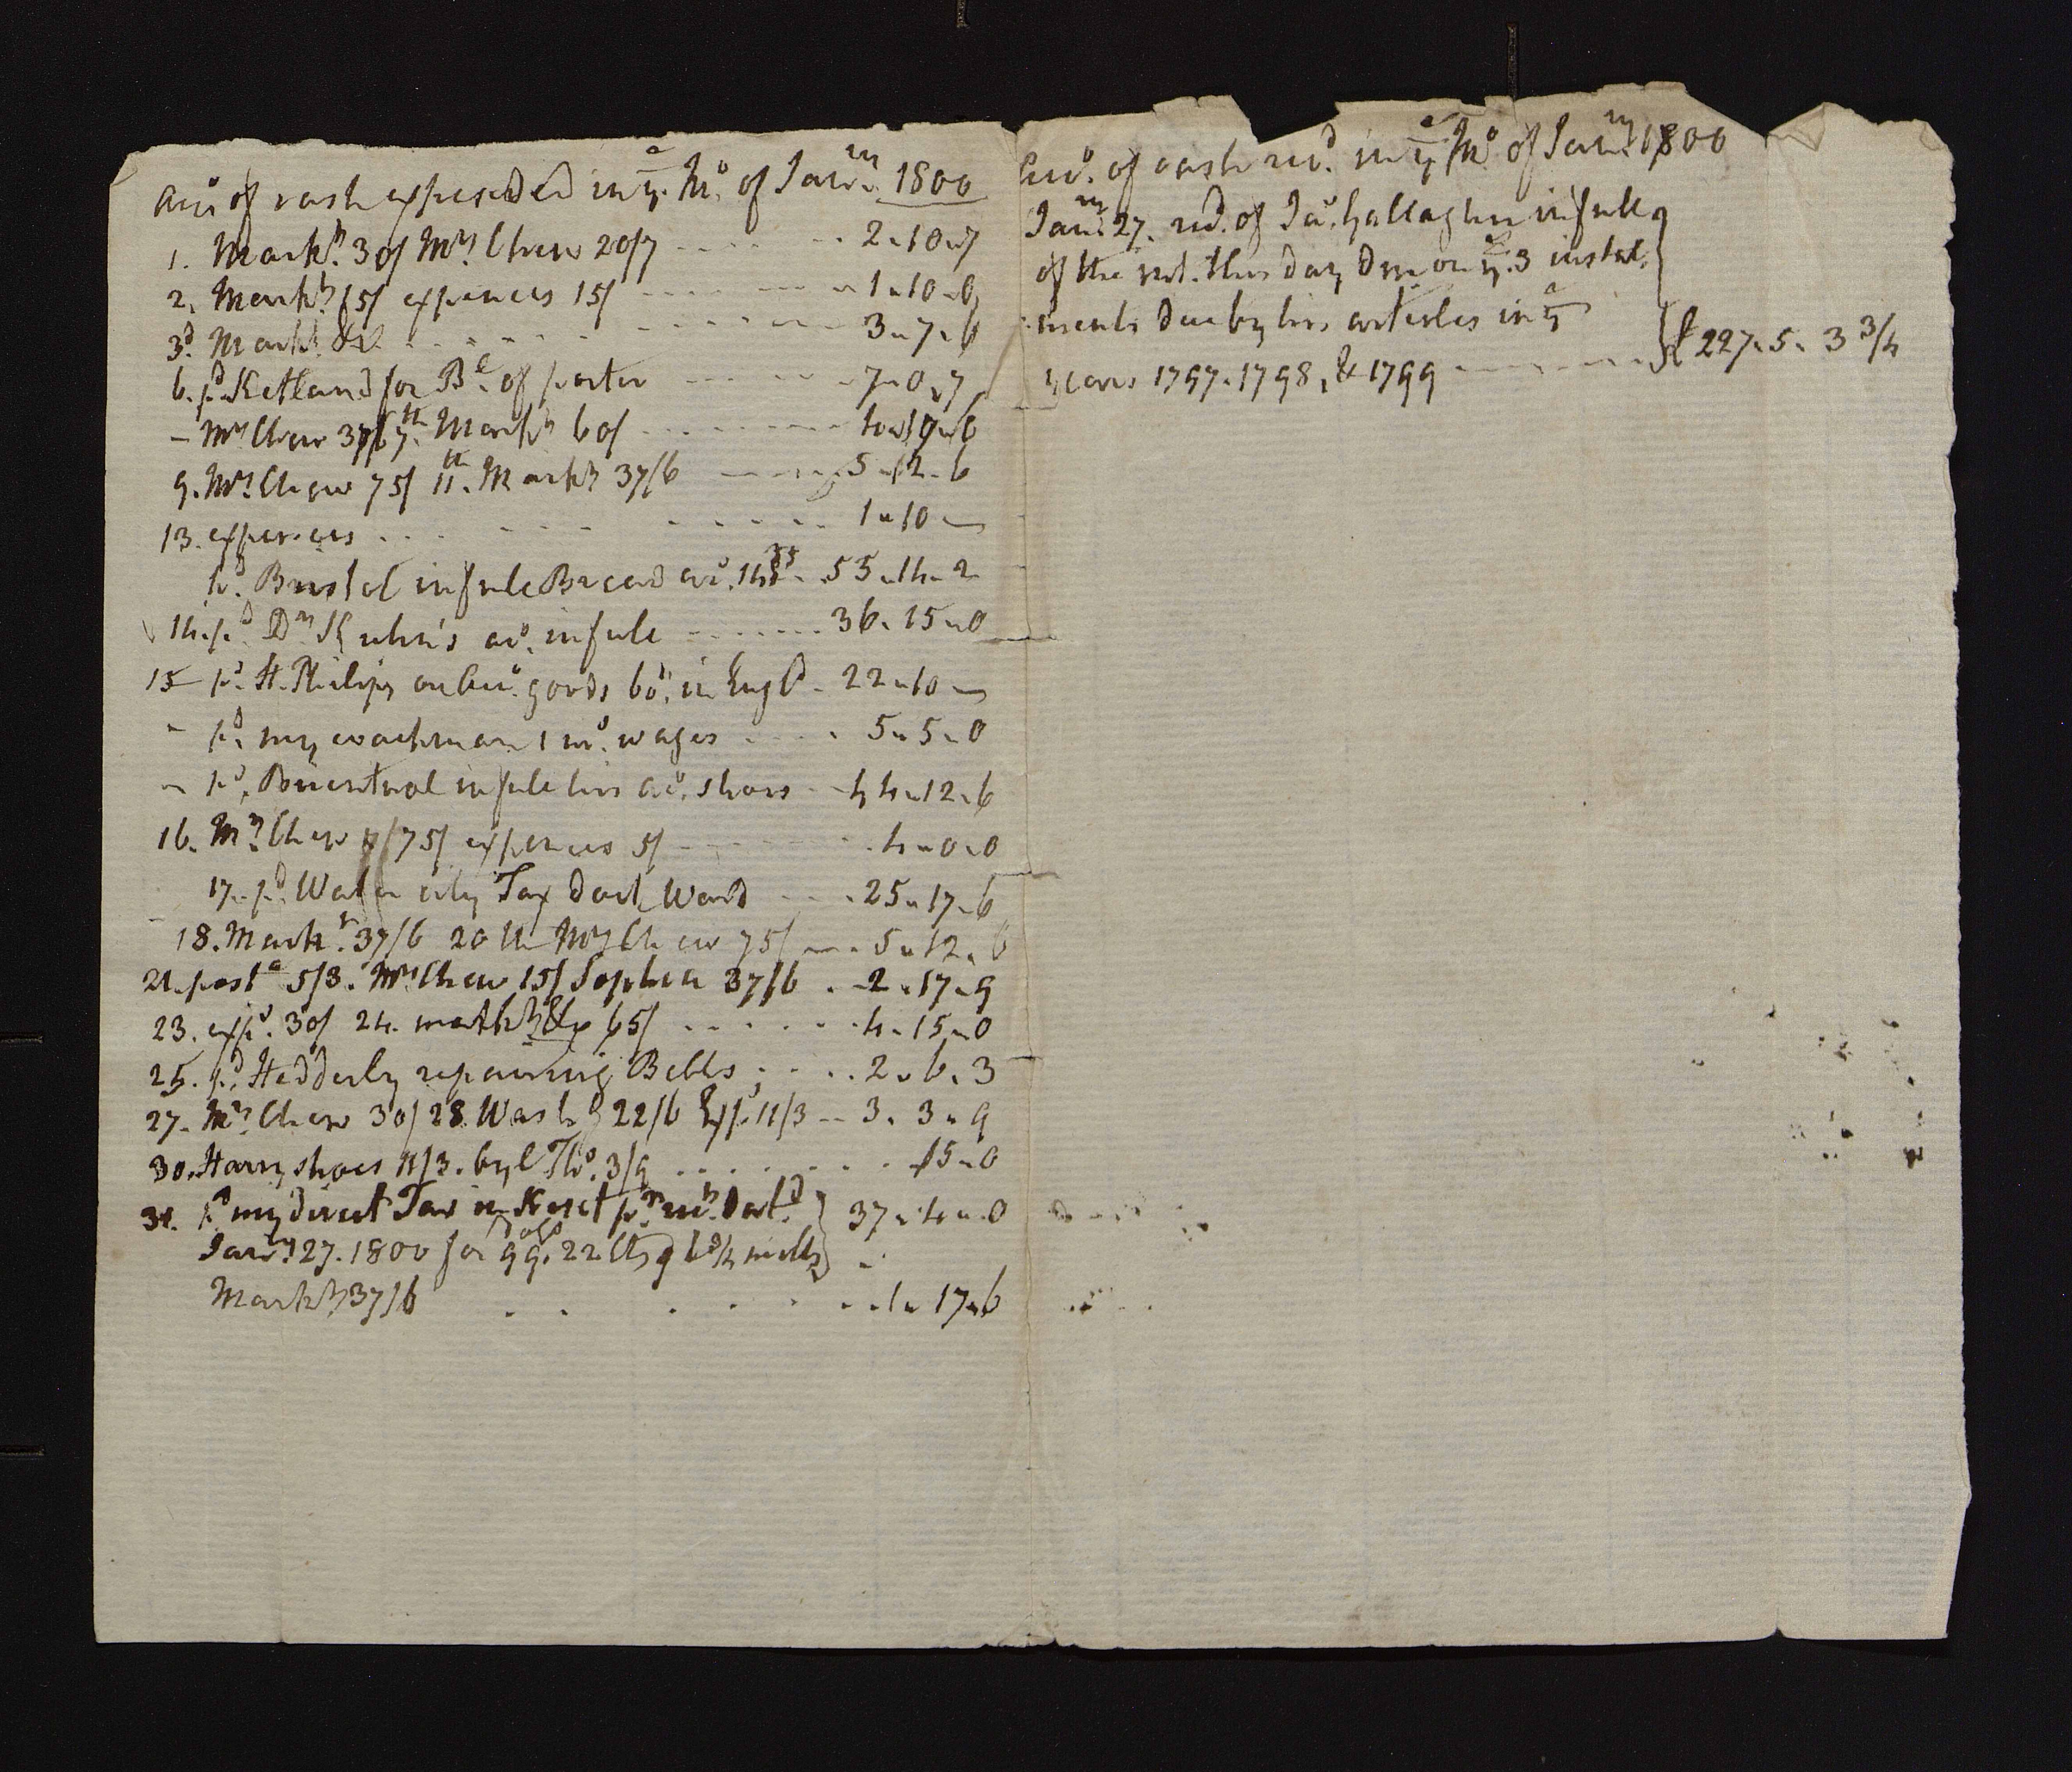 Acco. of cash expended in ye. Mo. of Janry. 1800
1. Marktg. 30/ Mrs. Chew 20/7 2.10.7
2. Marktg. 15/ expences 15/ 1.10.0
3d. Markt. &c. 3.7.6
6. pd. Ketland for Bl. of porter 7.0.7
- Mrs. Chew 37/6 7th. Marktg. 60/ 4.17.6
9. Mrs. Chew 75/ 11th. Marktg. 37/6 5.12.6
13. expences 1.10
pd. Bristol in full Bread aco. 53.14.2
14. pd. Dr. Kuhn's aco. in full 36.15.0
15 pd. H. Philips on Acco. goods bot. in Engld. 22.10
" pd. my coachman 1 mo. wages 5.5.0
" pd. in full his aco. shoes 44.12.6
16. Mrs. Chew 75/ expences 5/ 4.0.0
17. pd. Water city Tax Dock Ward 25.17.6
18. Markt. 37/6 20th Mrs Chew 75/ 5.12.6
21. posta. 5/3. Mrs Chew 15/ Sophia 37/6 2.17.9
23. exps. 30/ 24. marktg. &c 65/ 4.15.0
25. pd. Hedderly repairing Bells 2.6.3
27. Mrs Chew 30/ 28. Washg 22/6 Exps. 11/3 3.3.9
30. Harry shoes 11/3. by Tho. 3/9 15.0
31. pd my direct Tax in Kent pr. rect. Datd. } 37.4.0
Janry 27. 1800 for 99 Dols. 22 Cts mills }
Marktg 37/6 1.17.6
Acco. of cash recd. in ye Mo. of Janry. 1800
Janry. 27. recd. of Ja. Gallagher in full
of the int. this day due on ye. 3 instal-
ments due by his articles in ye
years 1797. 1798, & 1799 } £227.5.3 3/4